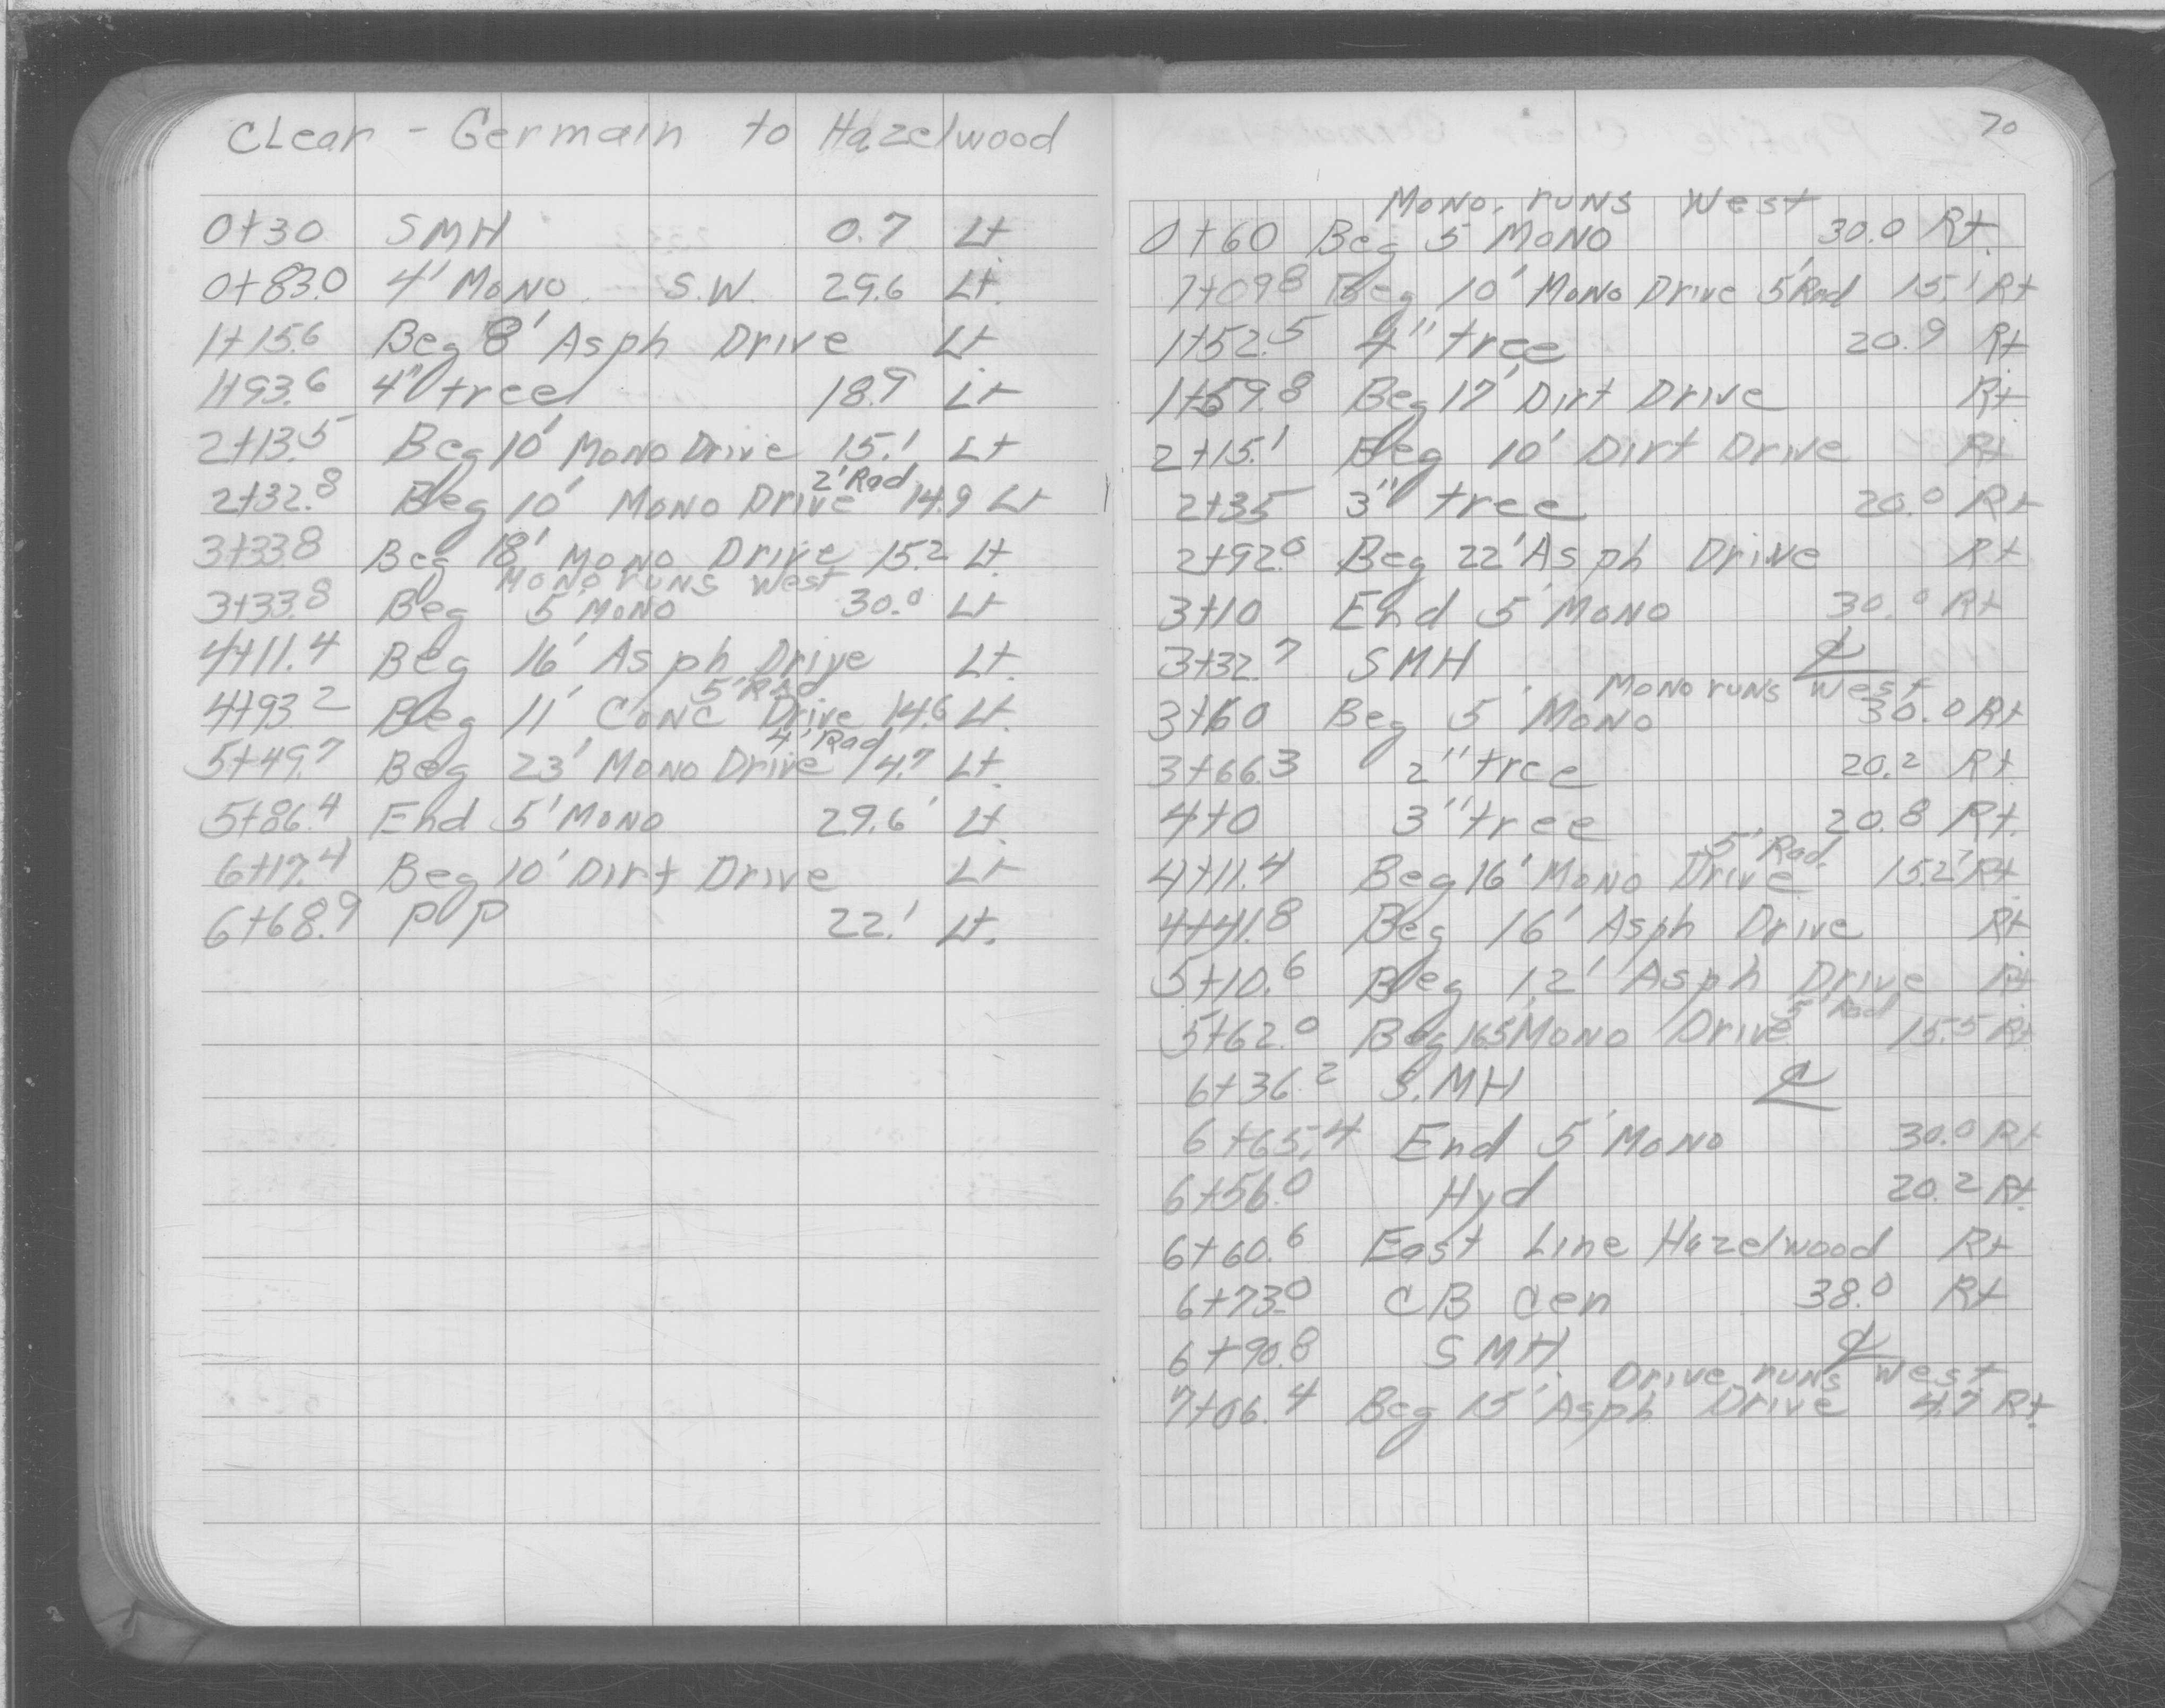 CLear - Germain to Hazelwood
0+30 SMH 0.7 Lt
0+83.0 4' Mono S.W. 29.6 Lt.
1+15.6 Beg 8' Asph Drive Lt
1+93.6 4" tree 18.9 Lt
2+13.5 Beg 10' Mono Drive 15.1 Lt
2' Rad
2+32.8 Beg 10' Mono Drive 14.9 Lt
3+33.8 Beg 18' Mono Drive 15.2 Lt.
Mono runs West
3+33.8 Beg 5' Mono 30.0 Lt
4+11.4 Beg 16' Asph Drive Lt.
5' Rad
4+93.2 Beg 11' Conc Drive 14.6 Lt.
4' Rad
5+49.7 Beg 23' Mono Drive 14.7 Lt.
5+86.4 End 5' Mono 29.6' Lt.
6+17.4 Beg 10' Dirt Drive Lt
6+68.9 PP 22.' Lt.
70
Mono. runs West
0+60 Beg 5' Mono 30.0 Rt.
1+09.8 Beg 10' Mono Drive 5' Rad 15.1 Rt
1+52.5 4" tree 20.9 Rt
1+59.8 Beg 17' Dirt Drive Rt
2+15.1 Beg 10' Dirt Drive Rt
2+35 3" tree 20.0 Rt
2+92.0 Beg 22' Asph Drive Rt
3+10 End 5' Mono 30.0 Rt
3+32.7 SMH ℄
Mono runs West
3+60 Beg 5' Mono 30.0 Rt
3+66.3 2" tree 20.2 Rt
4+0 3" tree 20.8 Rt.
5' Rad.
4+11.4 Beg 16' Mono Drive 15.2' Rt
4+41.8 Beg 16' Asph Drive Rt
5+10.6 Beg 12' Asph Drive Rt
5' Rad
5+62.0 Beg 16.5' Mono Drive 15.5 Rt
6+36.2 S.MH ℄
6+65.4 End 5' Mono 30.0 Rt
6+56.0 Hyd 20.2 Rt
6+60.6 East Line Hazelwood Rt
6+73.0 CB Cen 38.0 Rt
6+90.8 SMH ℄
Drive runs West
7+06.4 Beg 15' Asph Drive 4.7 Rt